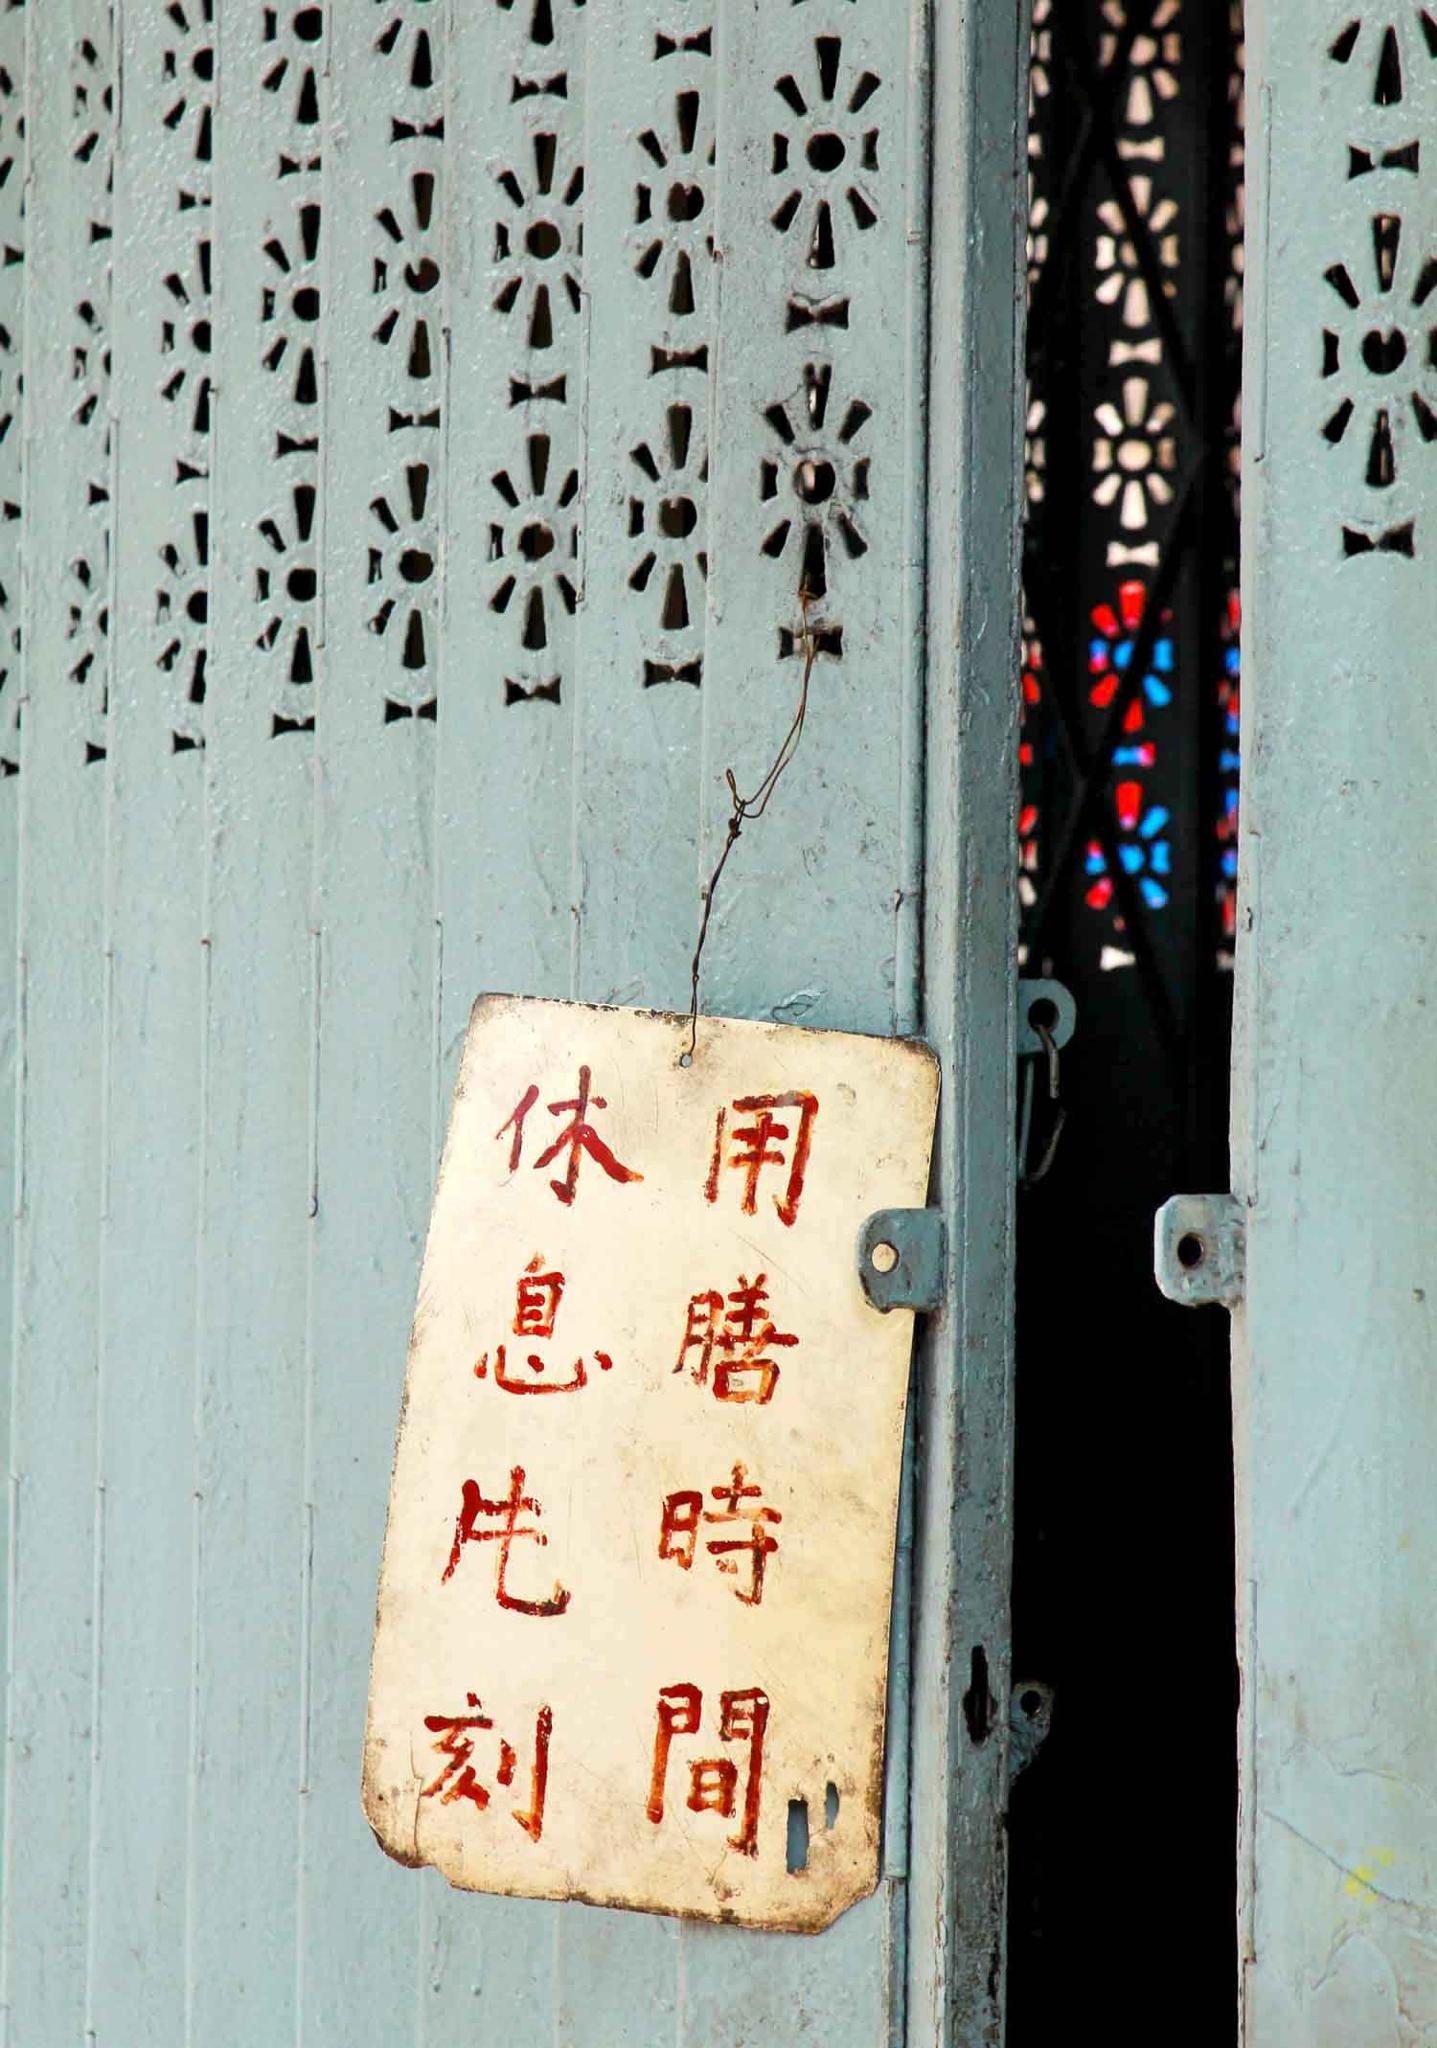 用膳時間
休息片刻